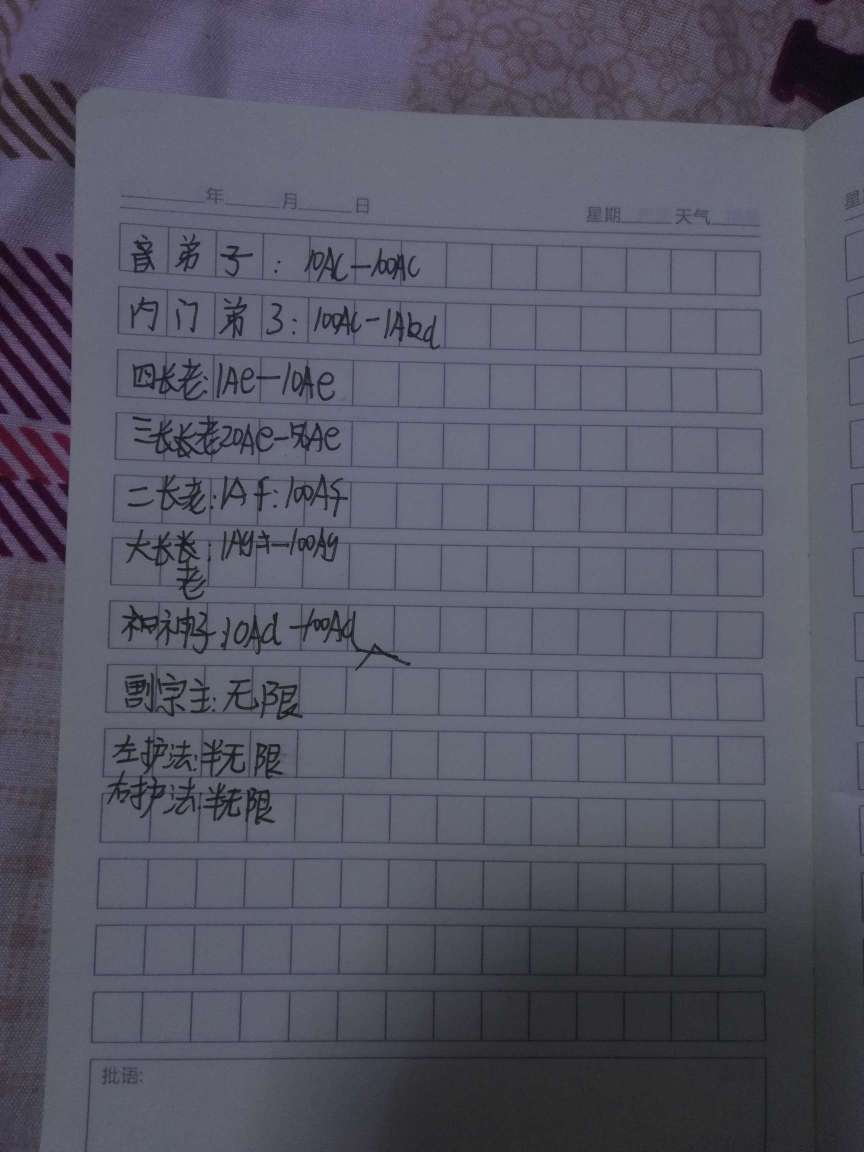 年 月 日 星期 天气
音弟子：10AC—100AC
内门弟3：100AC-1Abd
四长老：1Ae—10Ae
三长长老20Ae-50Ae
二长老：1Af：100Af
大长长老：1Ag—100Ag
神子：10Ad-100Ad
副宗主：无限
左护法：半无限
右护法：半无限
批语：
星